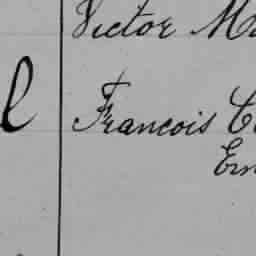 Victor Ma
l
Francois C
Ern